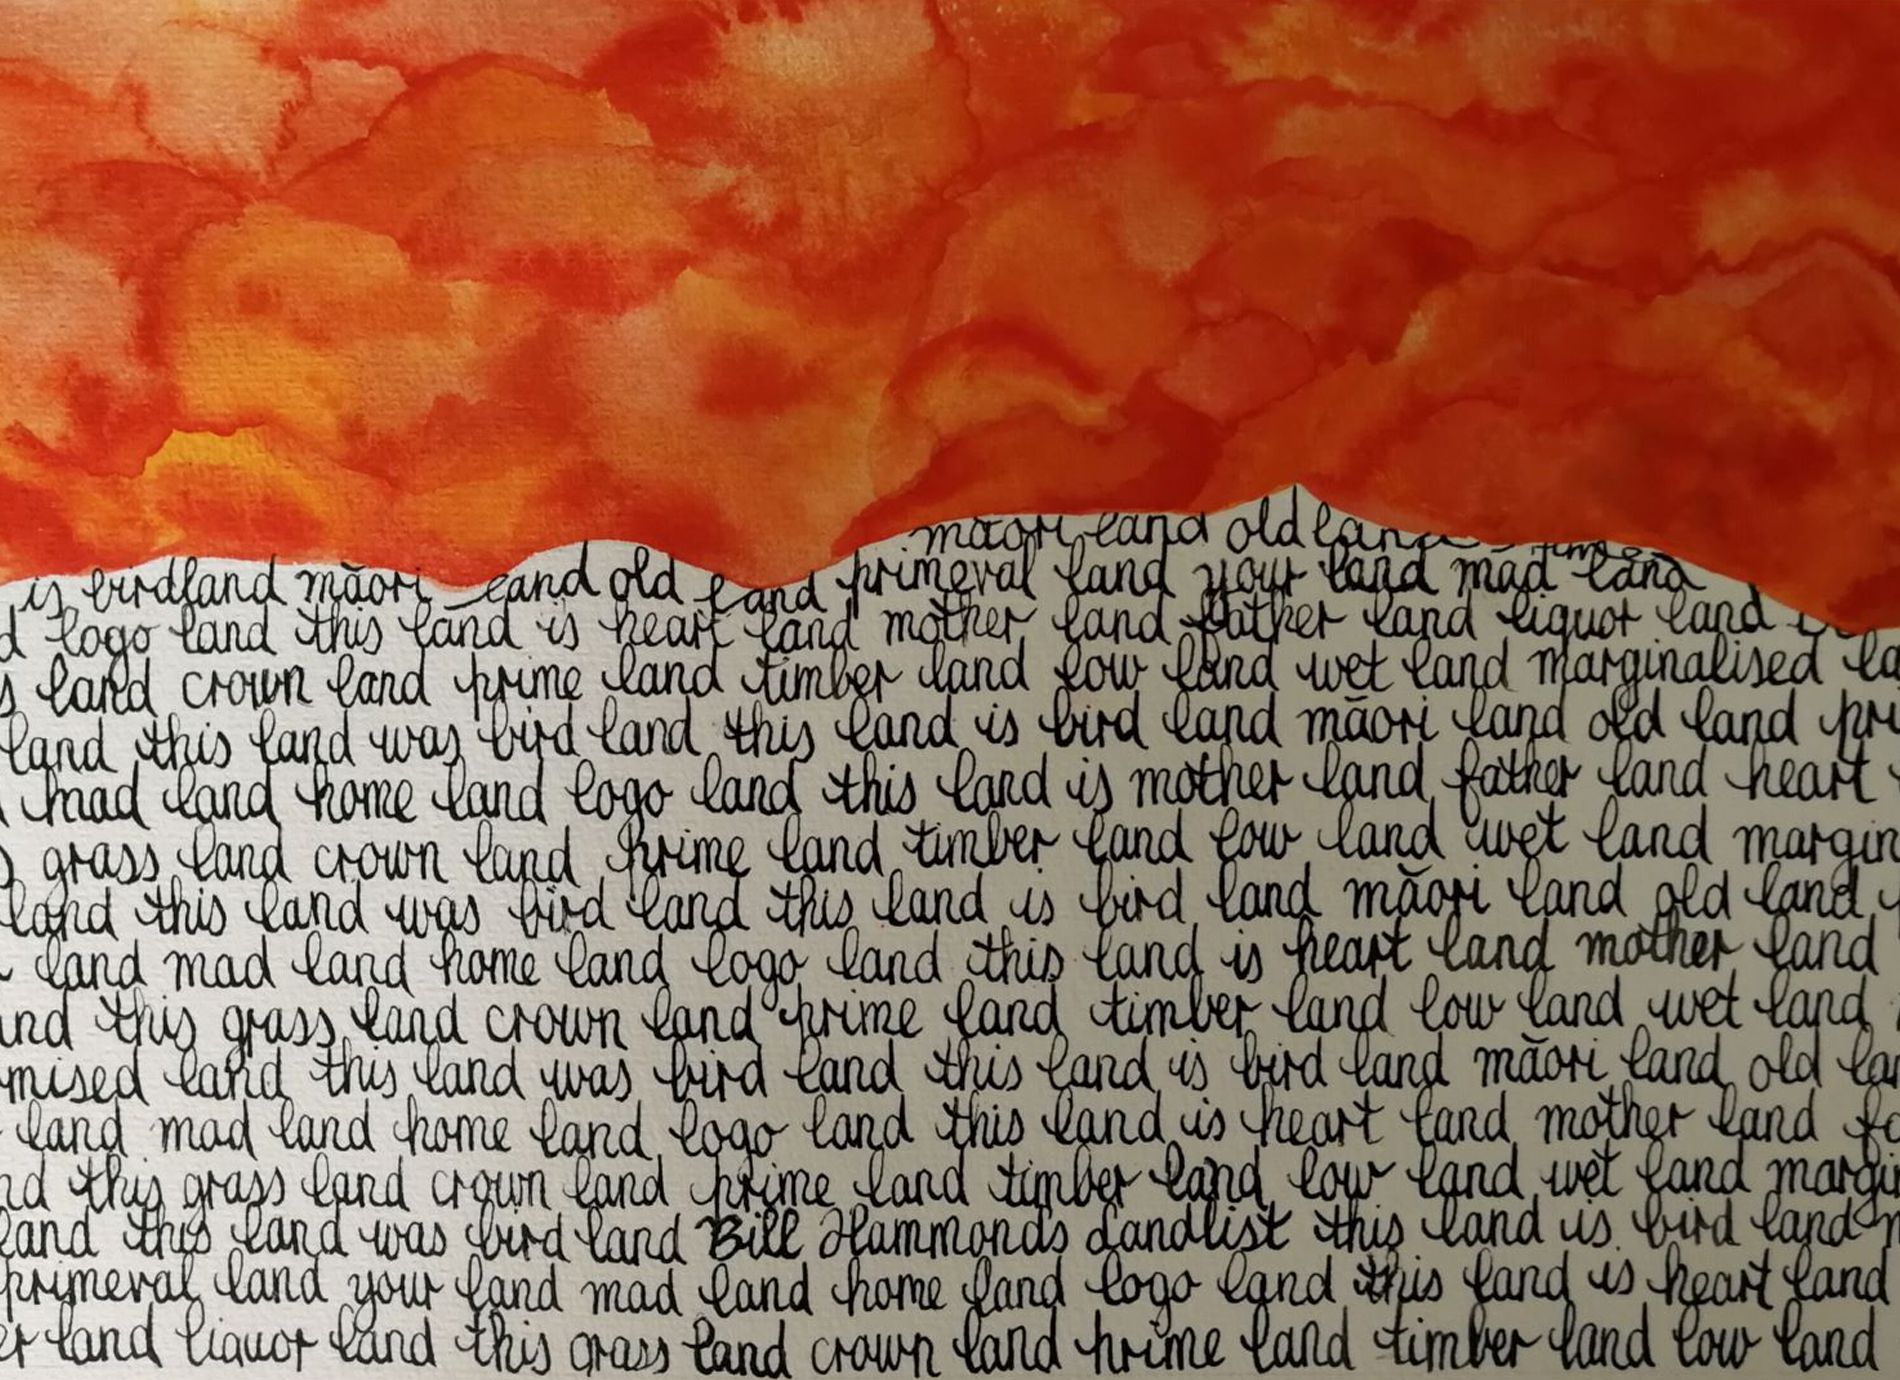 māori land old land
is birdland māori land old land primeval land your land mad land
logo land this land is heart land mother land father land liquor land
land crown land prime land timber land low land wet land marginalised
land this land was bird land this land is bird land māori land old land
mad land home land logo land this land is mother land father land heart
grass land crown land prime land timber land low land wet land
land this land was bird land this land is bird land māori land old land
land mad land home land logo land this land is heart land mother land
this grass land crown land prime land timber land low land wet land
land this land was bird land this land is bird land māori land old
land mad land home land logo land this land is heart land mother land
this grass land crown land prime land timber land low land wet land
land this land was bird land Bill Hammonds Landlist this land is bird land
primeval land your land mad land home land logo land this land is heart land
land liquor land this grass land crown land prime land timber land low land